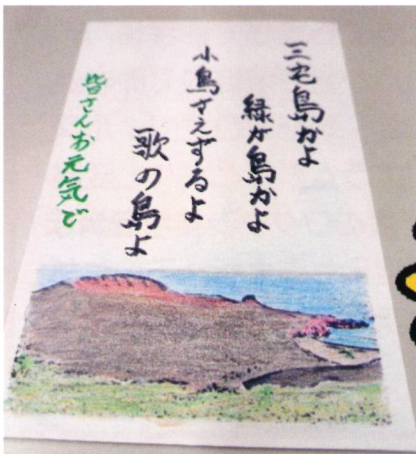 三宅島かよ
緑が島かよ
小鳥さえずるよ
歌の島よ
皆さんお元気で